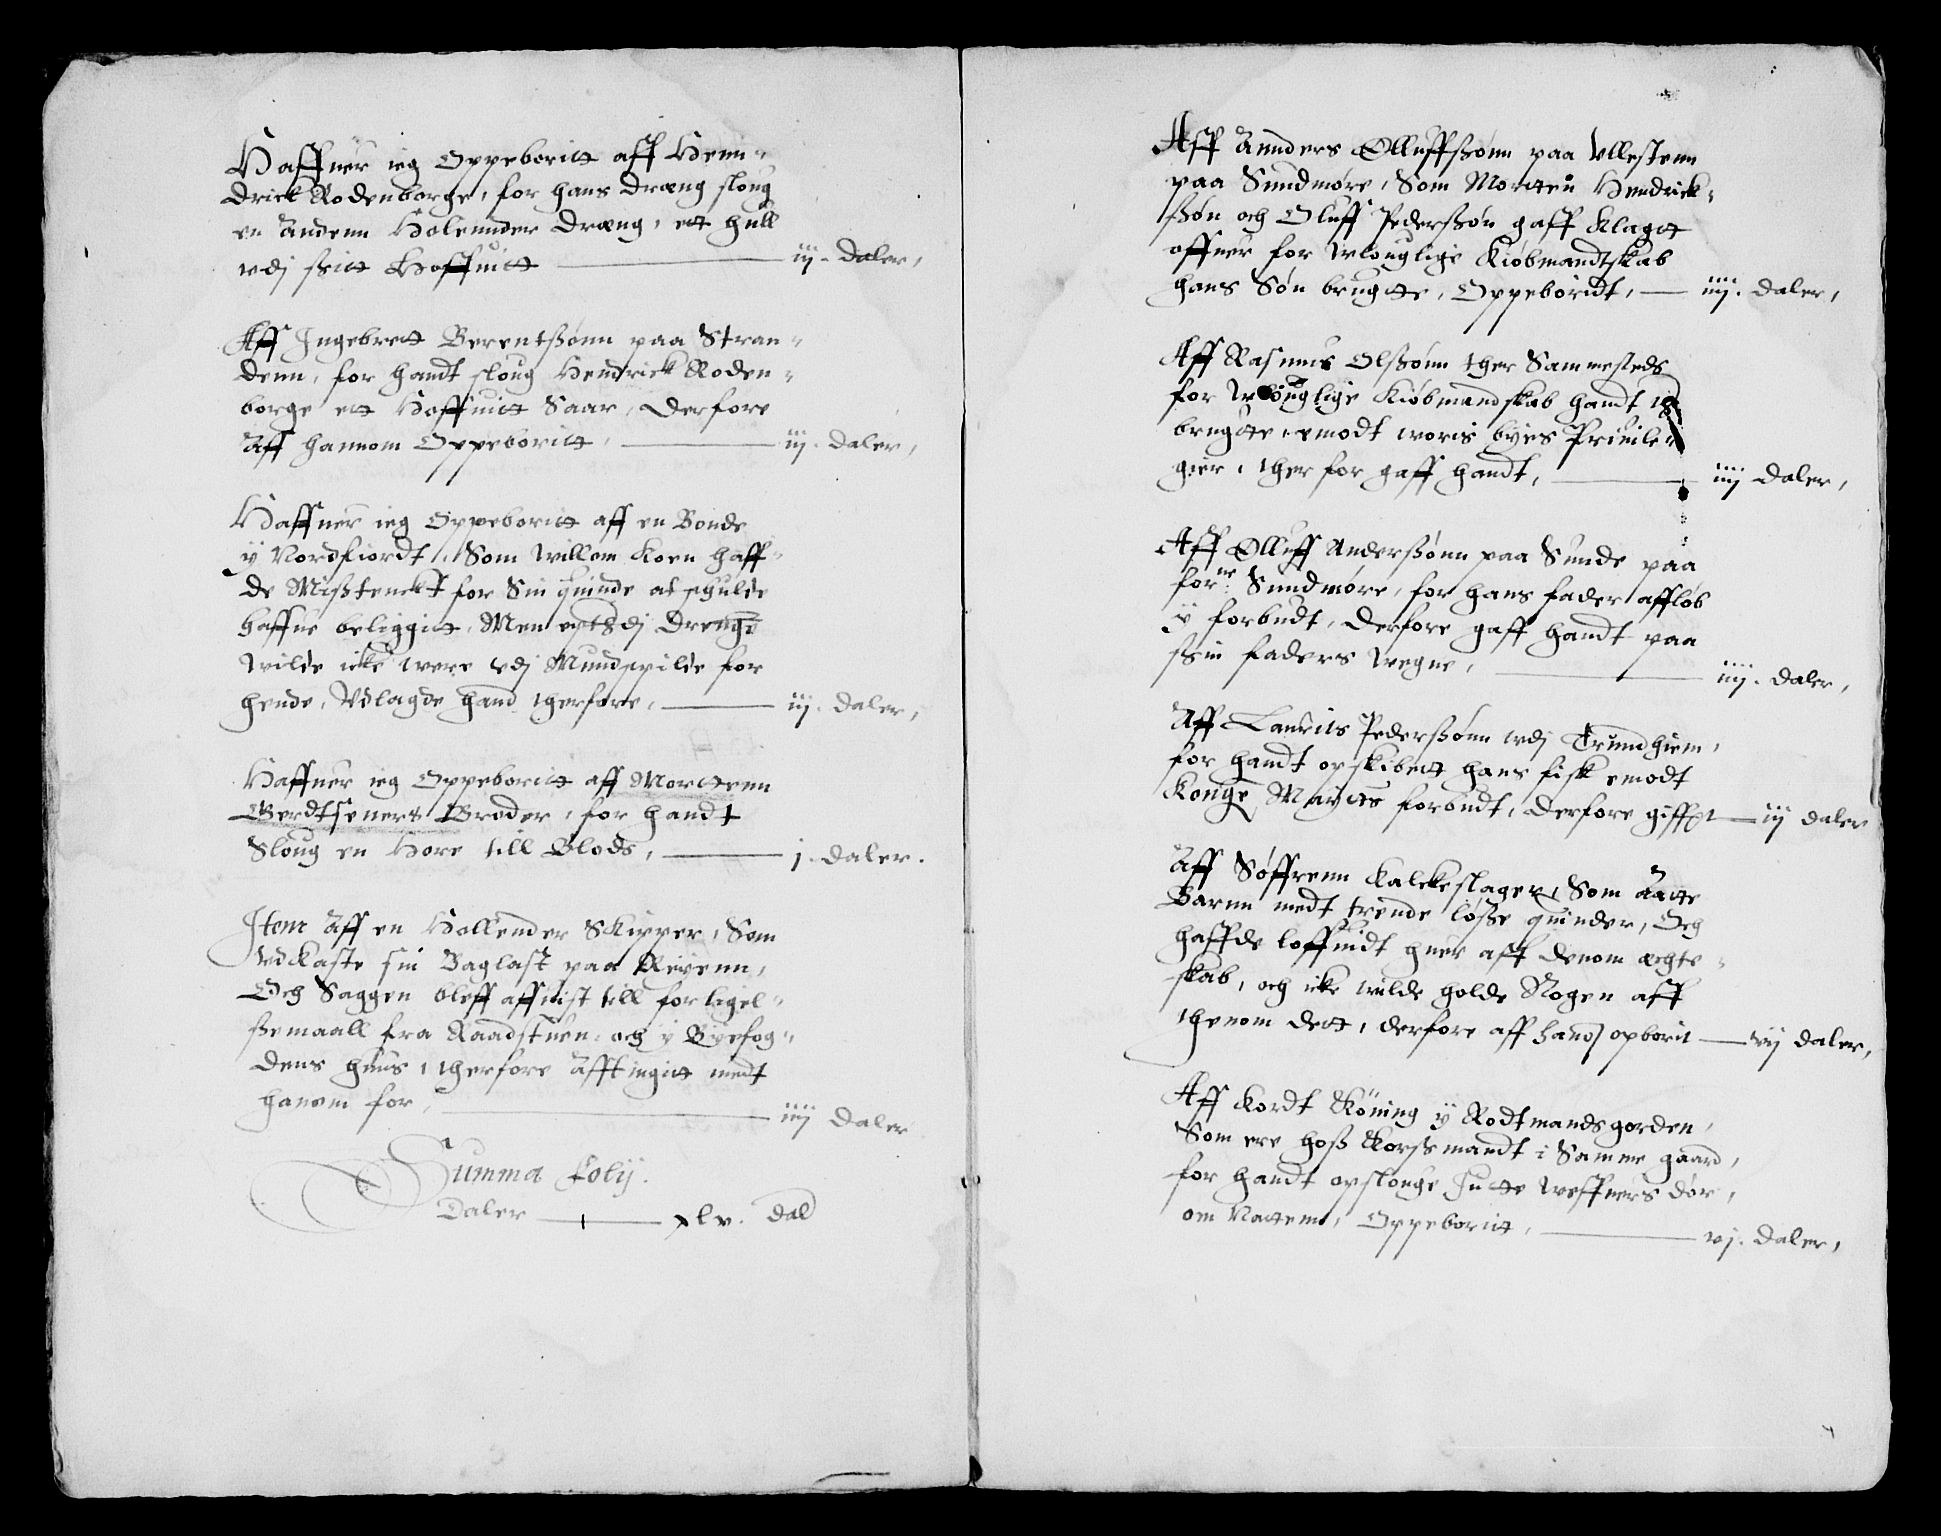 Haffuer ieg Oppeboritt aff Henn-
drick Rodenborge, for hans dræng sloug
en Andenn Holennder dræng, ett hull
vdj ssitt Hoffuitt — iij. daler,
Aff Ingebrett Berentßønn paa Stran-
denn, for handt sloug Hendrick Roden-
borge ett Hoffuitt Saar, derfore
Aff hannom Oppeboritt, — iij. daler,
Haffuer ieg Oppeboritt aff en Bonde
y Nordfiordt, Som Willom Koen haff-
de Mißtenckt for Sin quinde at schulde
haffue beliggitt, Men epthdj drenge
wilde icke were vdj Mundspilde for
hende, Vdlagde hand therfore, — iij. daler,
Haffuer ieg Oppeboritt aff Morttenn
Gerdtseners Broder, for handt
Sloug en Hore till Blods, — j. daler.
Item Aff en Hollender Skipper, Som
Vdkaste sin Baglast paa Reuenn,
Och Saggen bleff affuist till forligel-
ßemaall fra Raadstuen, och y Byefog-
dens huus, therfore Afftingitt medt
hanom for, — iiij daler
Summa folij.
Daler — xlv. dal
Aff Annders Olluffßønn paa Vllestenn
paa Sundmøre, Som Morten Hendrick-
ßøn och Oluff Pederßøn gaff klagtt
offuer for Wlouglige Kiøbmandtskab
hans Søn brugtte, Oppeboridt, — iiij. daler,
Aff Rasmus Olßønn ther Sammesteds
for Wlouglige Kiøbmandskab handt
brugtte, emodt woris byes Priuile-
gier, therfor gaff handt, — iiij daler,
Aff Olluff Anderßønn paa Sunde paa
forne Sundmøre, for hans fader affløb
y forbudt, derfore gaff handt paa
ssin faders Wegne, — iiij. daler,
Aff Laurits Pederßønn vdj Trundhiem,
for handt opskibett hans fisk emodt
Konge Maytts forbudt, derfore giffet — iij daler
Aff Søffrenn Kalckeslager, Som Aatte
Barnn medt trende løße quinder, Och
haffde loffuidt huer aff denom ægte-
skab, och icke wilde holde Nogen aff
thenom dett, derfore aff hand opborit — viij daler,
Aff Kordt Køning y Rodtmandsgorden,
Som ere hoß Korssmandt i Samme gaard,
for handt opslouge Jutte Weffuers dør,
om Nattenn, Oppeboritt, — vj. daler,